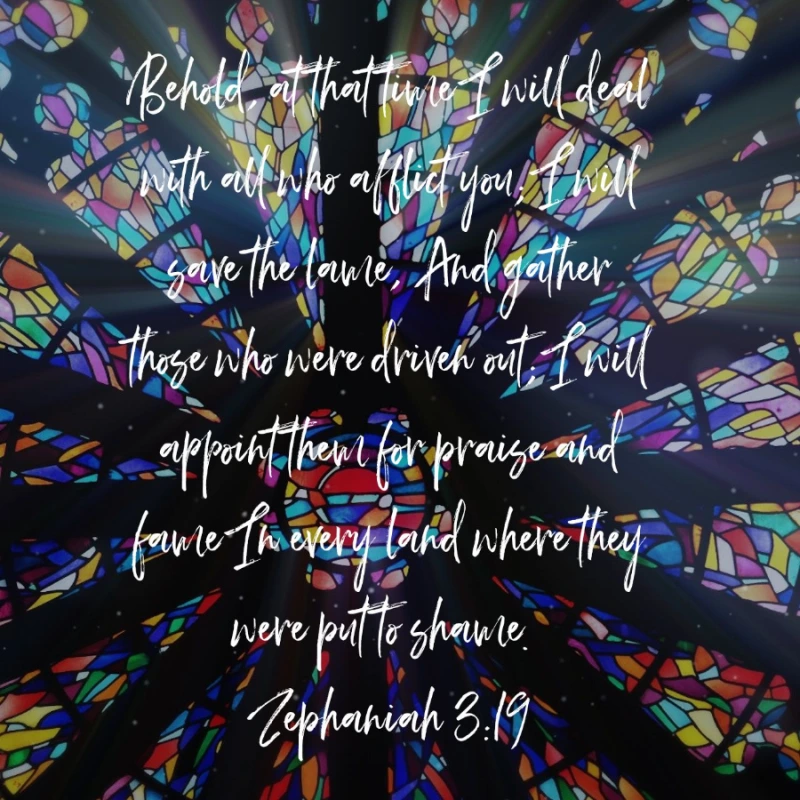 Behold, at that time I will deal
with all who afflict you; I will
save the lame, And gather
those who were driven out; I will
appoint them for praise and
fame In every land where they
were put to shame.
Zephaniah 3:19